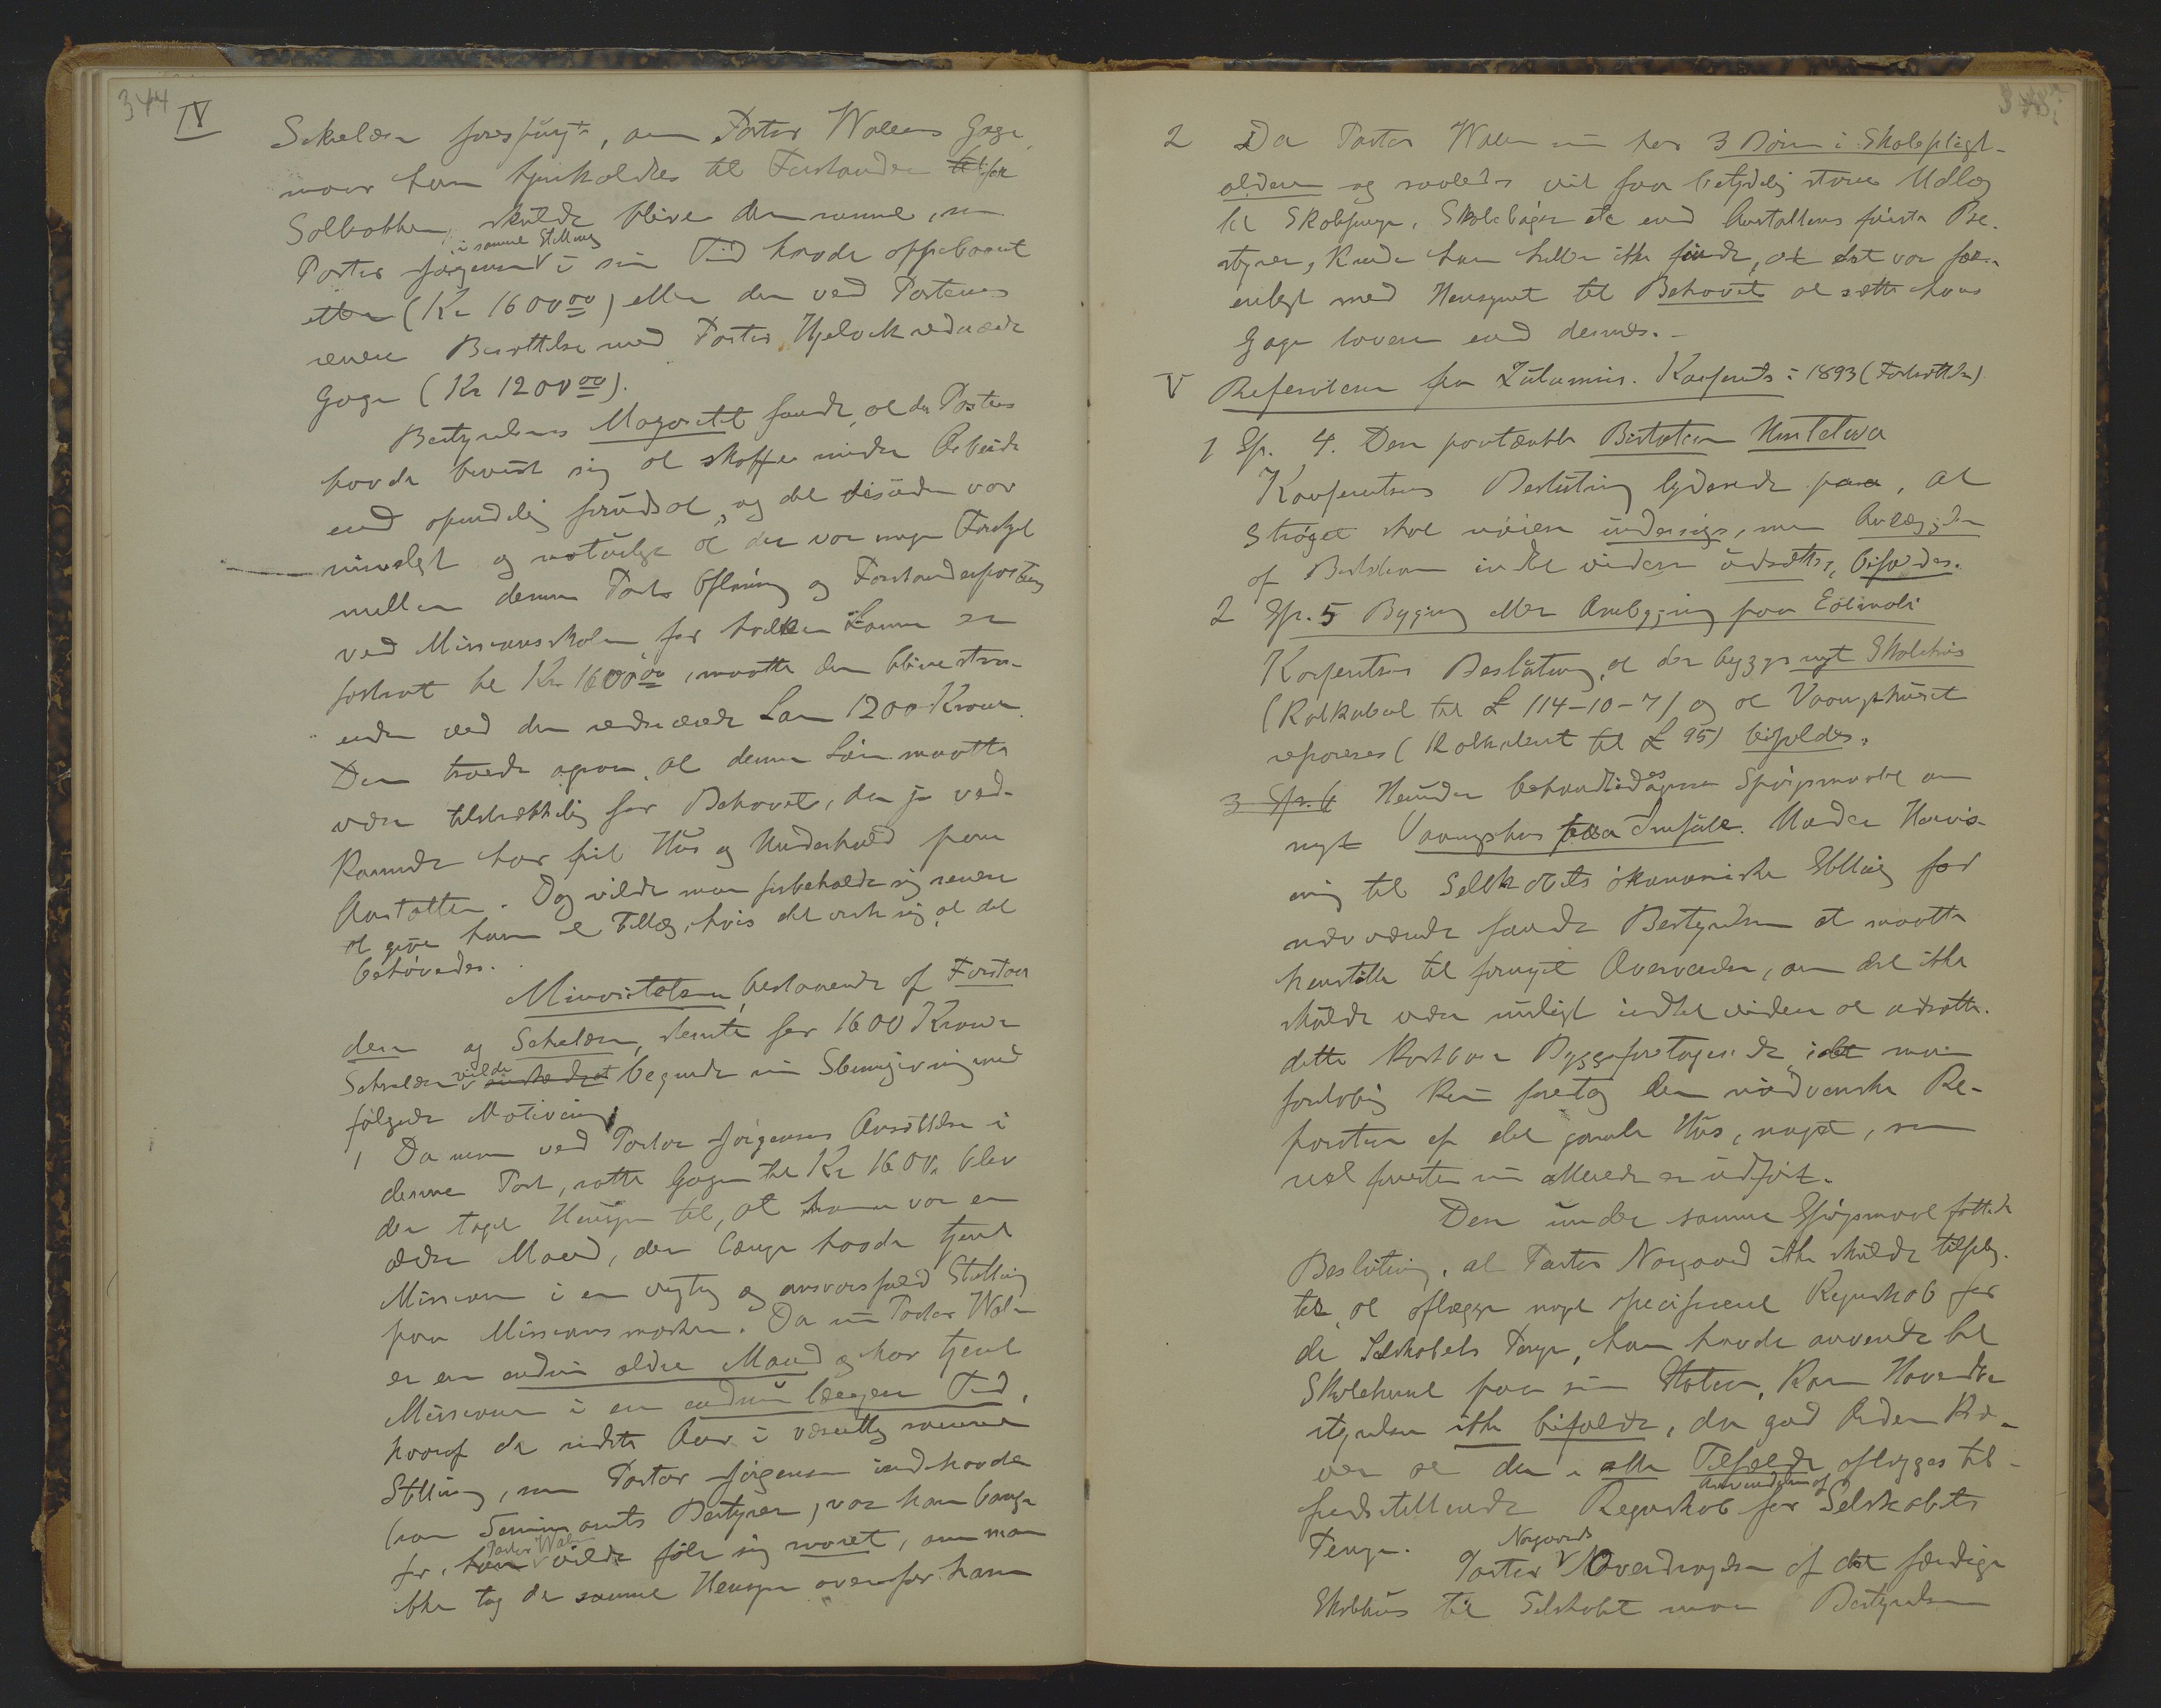 344
IV
Sekretæren forespurgte, om Pastor Wolles Gage,
naar han hjemkaldtes til Forstander for
Solbakken, skulde blive den samme, som
i samme Stilling
Pastor Jørgensen i sin Tid havde oppebaaret
(Kr 1600 00) eller den ved Postens
senere Besættelse med Pastor Hjelvik
Gage (Kr 1200 00).
Bestyrelsens Majoritet fandt, at da Posten
havde bevist sig at skaffe mindre Arbeide
end oprindelig forudsat, og det desuden var
rimeligt og naturligt at der var noget Forhold
mellem denne Posts Aflønning og Forstanderposten
ved Missionsskolen, for hvilken Lønnen er
fastsat til Kr. 1600 00, maatte den blive
ved den nuværende Løn 1200 Kroner.
Den troede ogsaa, at denne Løn maatte
være tilstrækkelig for Behovet, da jo ved-
kommende har frit Hus og Underhold paa
Anstalten. Dog vilde man forbeholde sig senere
at give ham et Tillæg, hvis det viste sig, at det
behøvedes.
Minoriteten, bestaaende af Forstan
deren og Sekretæren, stemte for 1600 Kroner
Sekretæren vilde begrunde sin Stemmegivning med
følgende Motivering
1 Da man ved Pastor Jørgensens Ansættelse i
denne Post, satte Gagen til Kr 1600, blev
der taget Hensyn til, at han var en
ældre Mand, der længe havde tjent
Missionen i en vigtig og ansvarsfuld Stilling
paa Missionsmarken. Da nu Pastor Wolle
er en endnu ældre Mand og har tjent
Missionen i en endnu længere Tid,
hvoraf de sidste Aar i væsentlig samme
Stilling, som Pastor Jørgensen indehavde
(som Seminariets Bestyrer), var han bange
for, Pastor Wolle vilde føle sig saaret, om man
ikke tog de samme Hensyn overfor ham
345
2 Da Pastor Wolle nu har 3 Børn i Skolepligt-
alderen og saaledes vil faa betydelig større Udlæg
til Skolepenge, Skolebøger etc end Anstaltens første Be-
styrer, kunde han heller ikke finde, at det var for-
enligt med Hensynet til Behovet at sætte hans
Gage lavere end dennes. -
V Referaterne fra Zulumiss. Konferents i 1893 (Fortsættelse)
1 Sp. 4. Den paatænkte Bistation Umtetwa
Konferentsens Beslutning lydende paa, at
Strøget skal nøiere undersøges, men Anlæggelsen
af Bistationen indtil videre udsættes, bifaldes.
2 Sp. 5 Bygning eller Ombygning paa Eotimati
Konferentsens Beslutning, at der bygges nyt Skolehus
(Kalkuleret til £ 114-10-7) og at Vaaningshuset
repareres (Kalkuleret til £ 95) bifaldes.
3 Sp. 6 Herunder behandledes ogsaa Spørgsmaalet om
nyt Vaaningshus paa Imfule. Under Henvis-
ning til Selskabets økonomiske Stilling for
nærværende fandt Bestyrelsen at maatte
henstille til fornyet Overveielse, om det ikke
skulde være muligt indtil videre at udsætte
dette kostbare Byggeforetagende idet man
foreløbig kun foretog den nødvendige Re-
paration af det gamle Hus, noget, som
vel forresten nu allerede er udført.
Den under samme Spørgsmaal fattede
Beslutning, at Pastor Norgaard ikke skulde tilpligt-
tes at aflægge noget specificeret Regnskab for
de Selskabets Penge, han havde anvendt til
Skolehuset paa sin Station, kan Hovedbe-
styrelsen ikke bifalde, da god Orden kræ-
ver at der i alle Tilfælde aflægges til-
fredsstillende Regnskab for Anvendelsen af Selskabets
Penge.
Pastor Norgaards Overdragelse af det færdige
Skolehus til Selskabet maa Bestyrelsen